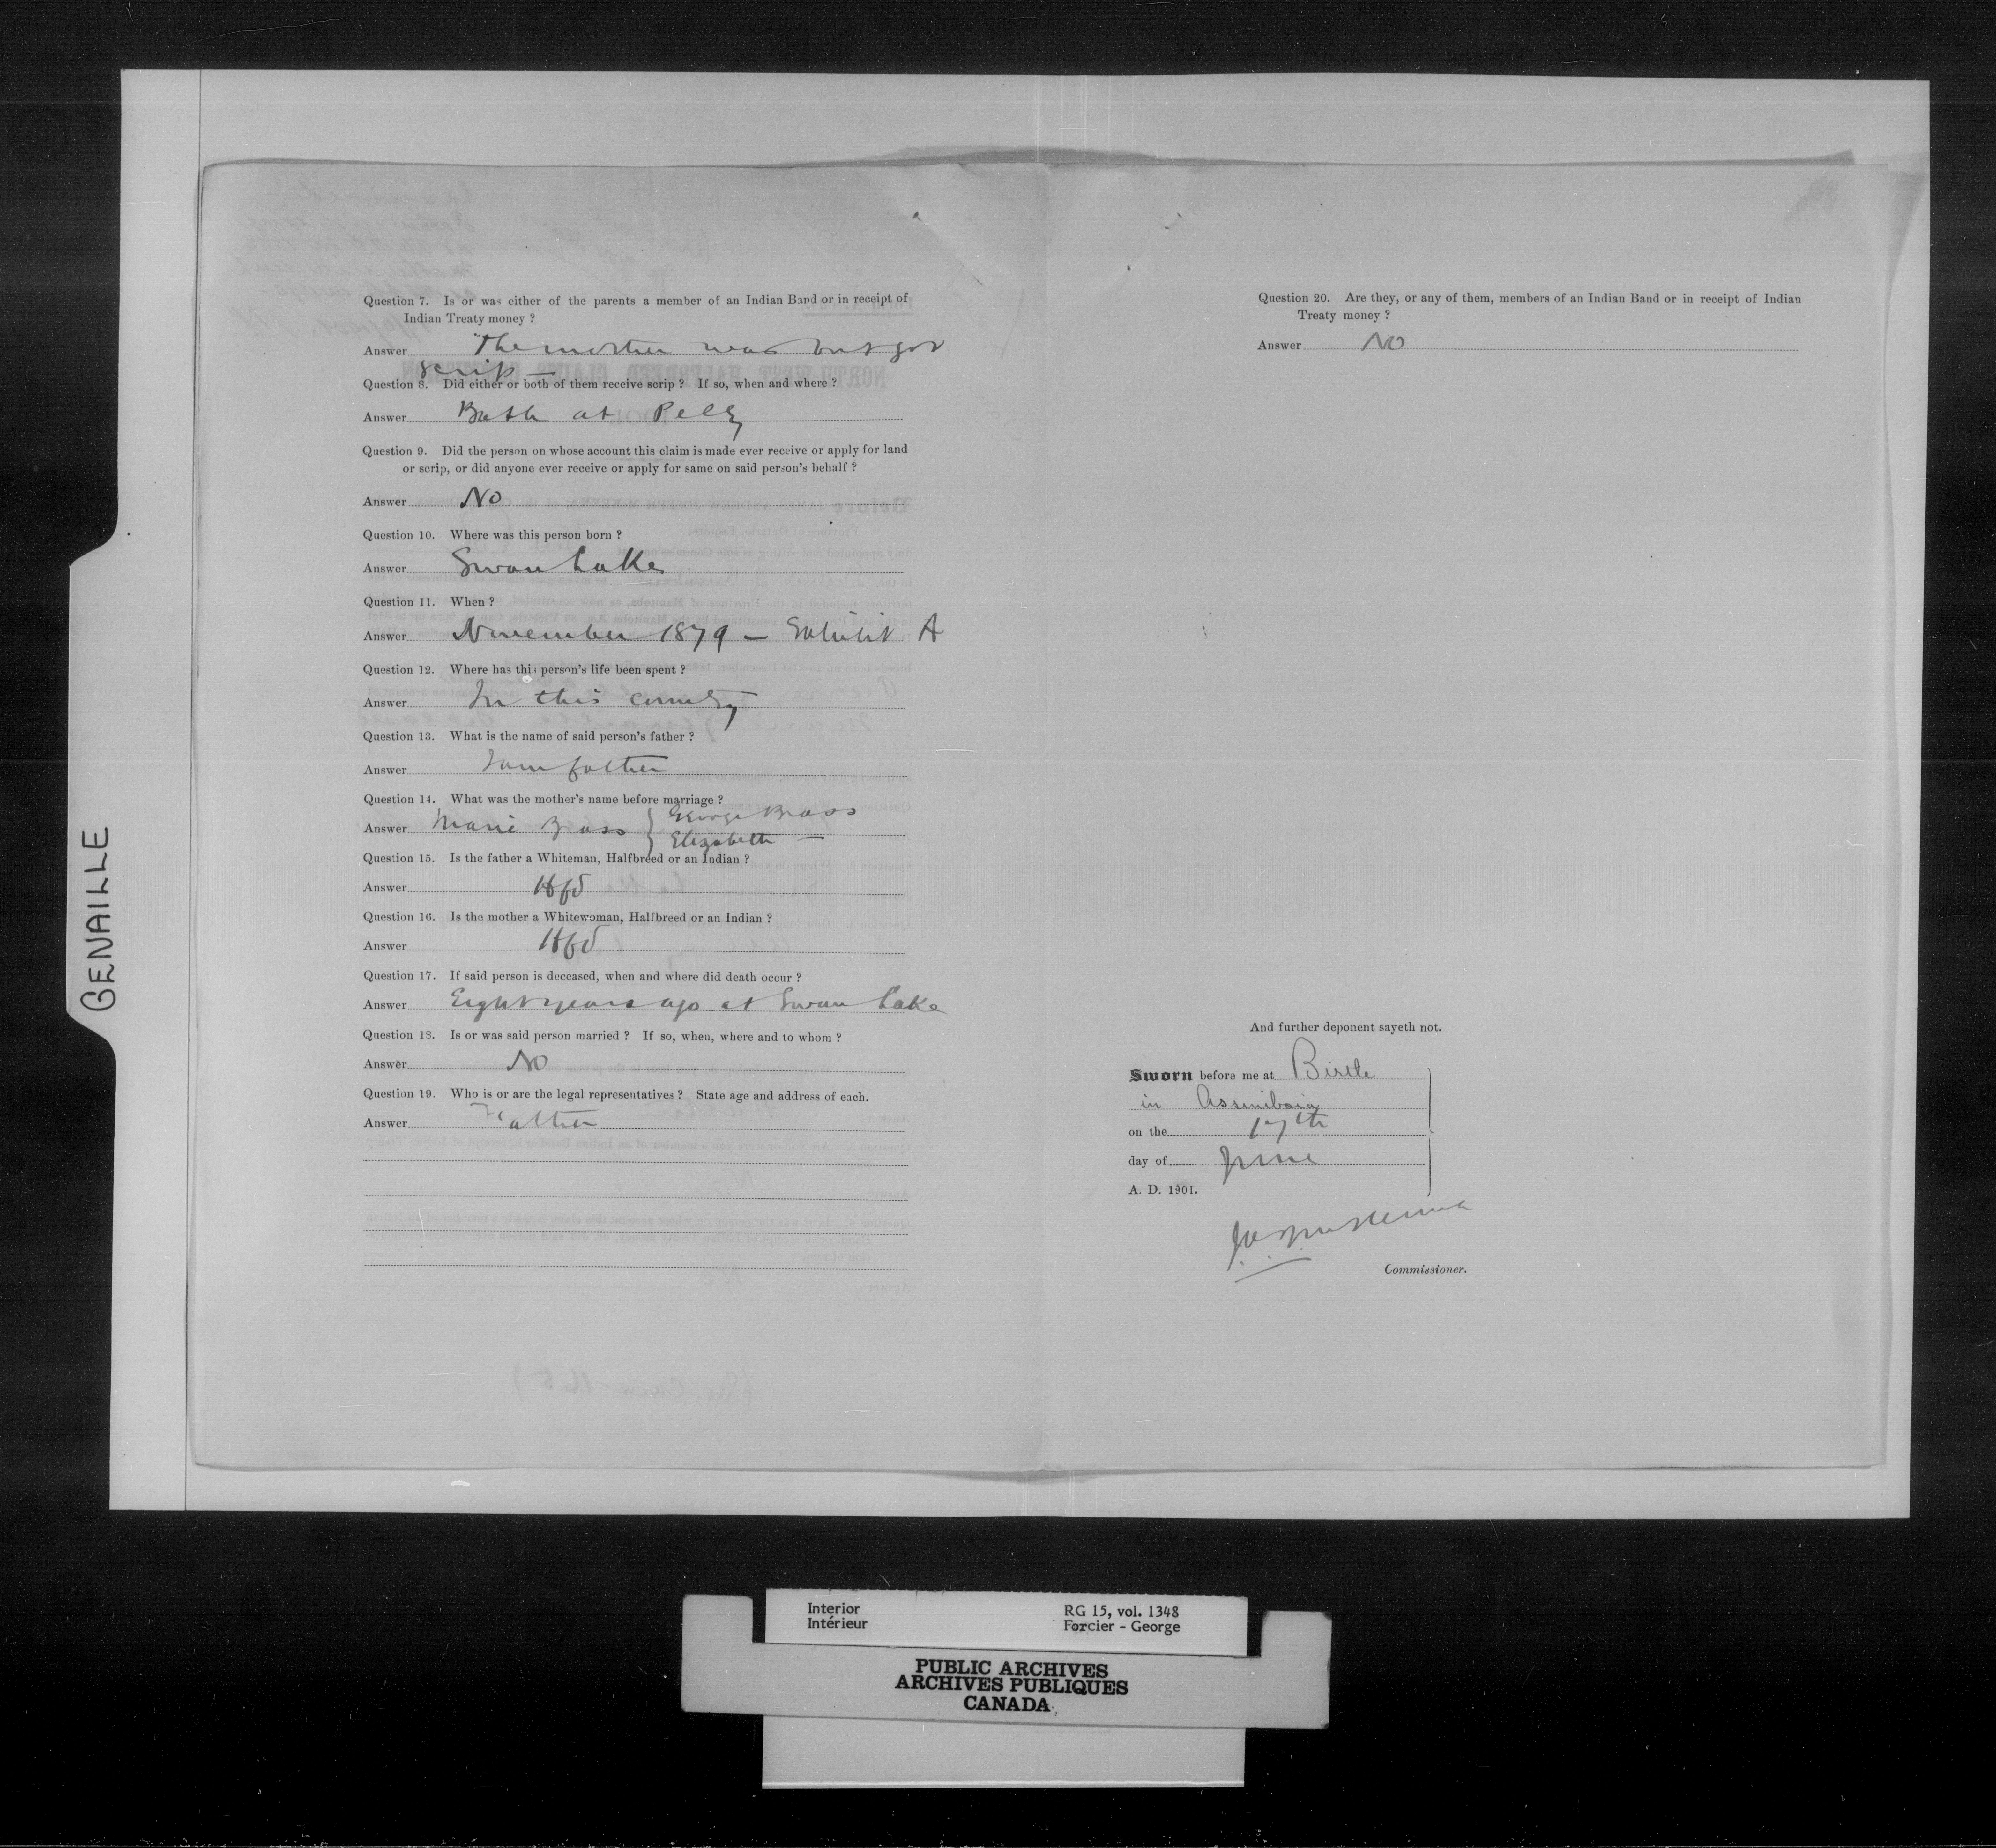 Question 7. Is or was either of the parents a member of an Indian Band or in receipt of
Indian Treaty money ?
Answer The mother was but got
scrip —
Question 8. Did either or both of them receive scrip ? If so, when and where ?
Answer Both at Pelly
Question 9. Did the person on whose account this claim is made ever receive or apply for land
or scrip, or did anyone ever receive or apply for same on said person's behalf ?
Answer No
Question 10. Where was this person born ?
Answer Swan Lake
Question 11. When ?
Answer November 1879 — Exhibit A
Question 12. Where has this person's life been spent ?
Answer In this country
Question 13. What is the name of said person's father ?
Answer I am father
Question 14. What was the mother's name before marriage ?
Answer Marie Brass { George Brass
Elizabeth —
Question 15. Is the father a Whiteman, Halfbreed or an Indian ?
Answer Hfbd
Question 16. Is the mother a Whitewoman, Halfbreed or an Indian ?
Answer Hfbd
Question 17. If said person is deceased, when and where did death occur ?
Answer Eight years ago at Swan Lake
Question 18. Is or was said person married ? If so, when, where and to whom ?
Answer No
Question 19. Who is or are the legal representatives ? State age and address of each.
Answer Father
Question 20. Are they, or any of them, members of an Indian Band or in receipt of Indian
Treaty money ?
Answer No
And further deponent sayeth not.
Sworn before me at Birtle
in Assiniboia
on the 17th
day of June
A. D. 1901.
Commissioner.
GENAILLE
Interior
Intérieur
RG 15, vol. 1348
Forcier - George
PUBLIC ARCHIVES
ARCHIVES PUBLIQUES
CANADA